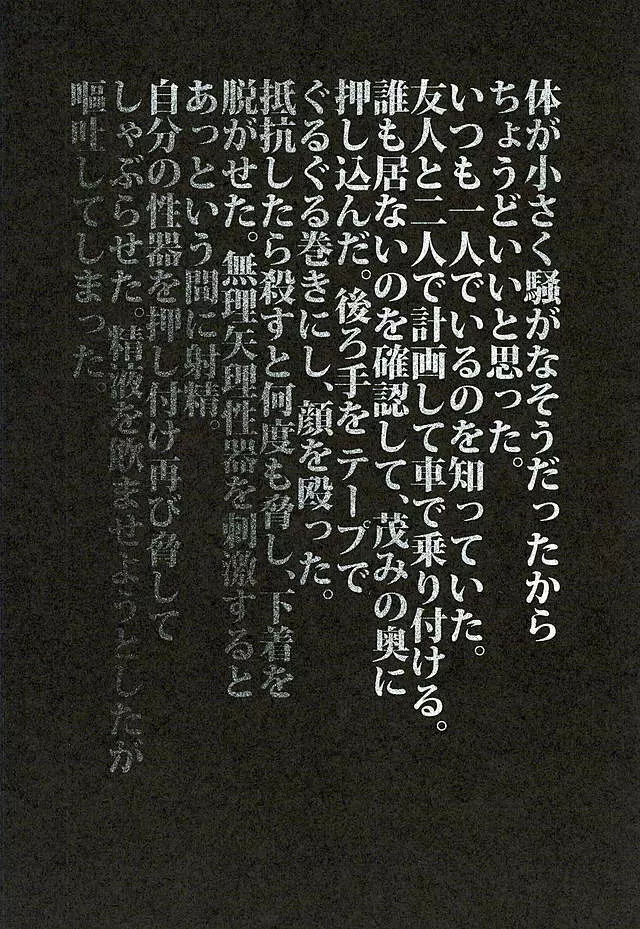 体が小さく騒がなそうだったから
ちょうどいいと思った。
いつも一人でいるのを知っていた。
友人と二人で計画して車で乗り付ける。
誰も居ないのを確認して、茂みの奥に
押し込んだ。後ろ手をテープで
ぐるぐる巻きにし、顔を殴った。
抵抗したら殺すと何度も脅し、下着を
脱がせた。無理矢理性器を刺激すると
あっという間に射精。
自分の性器を押し付け再び脅して
しゃぶらせた。精液を飲ませようとしたが
嘔吐してしまった。